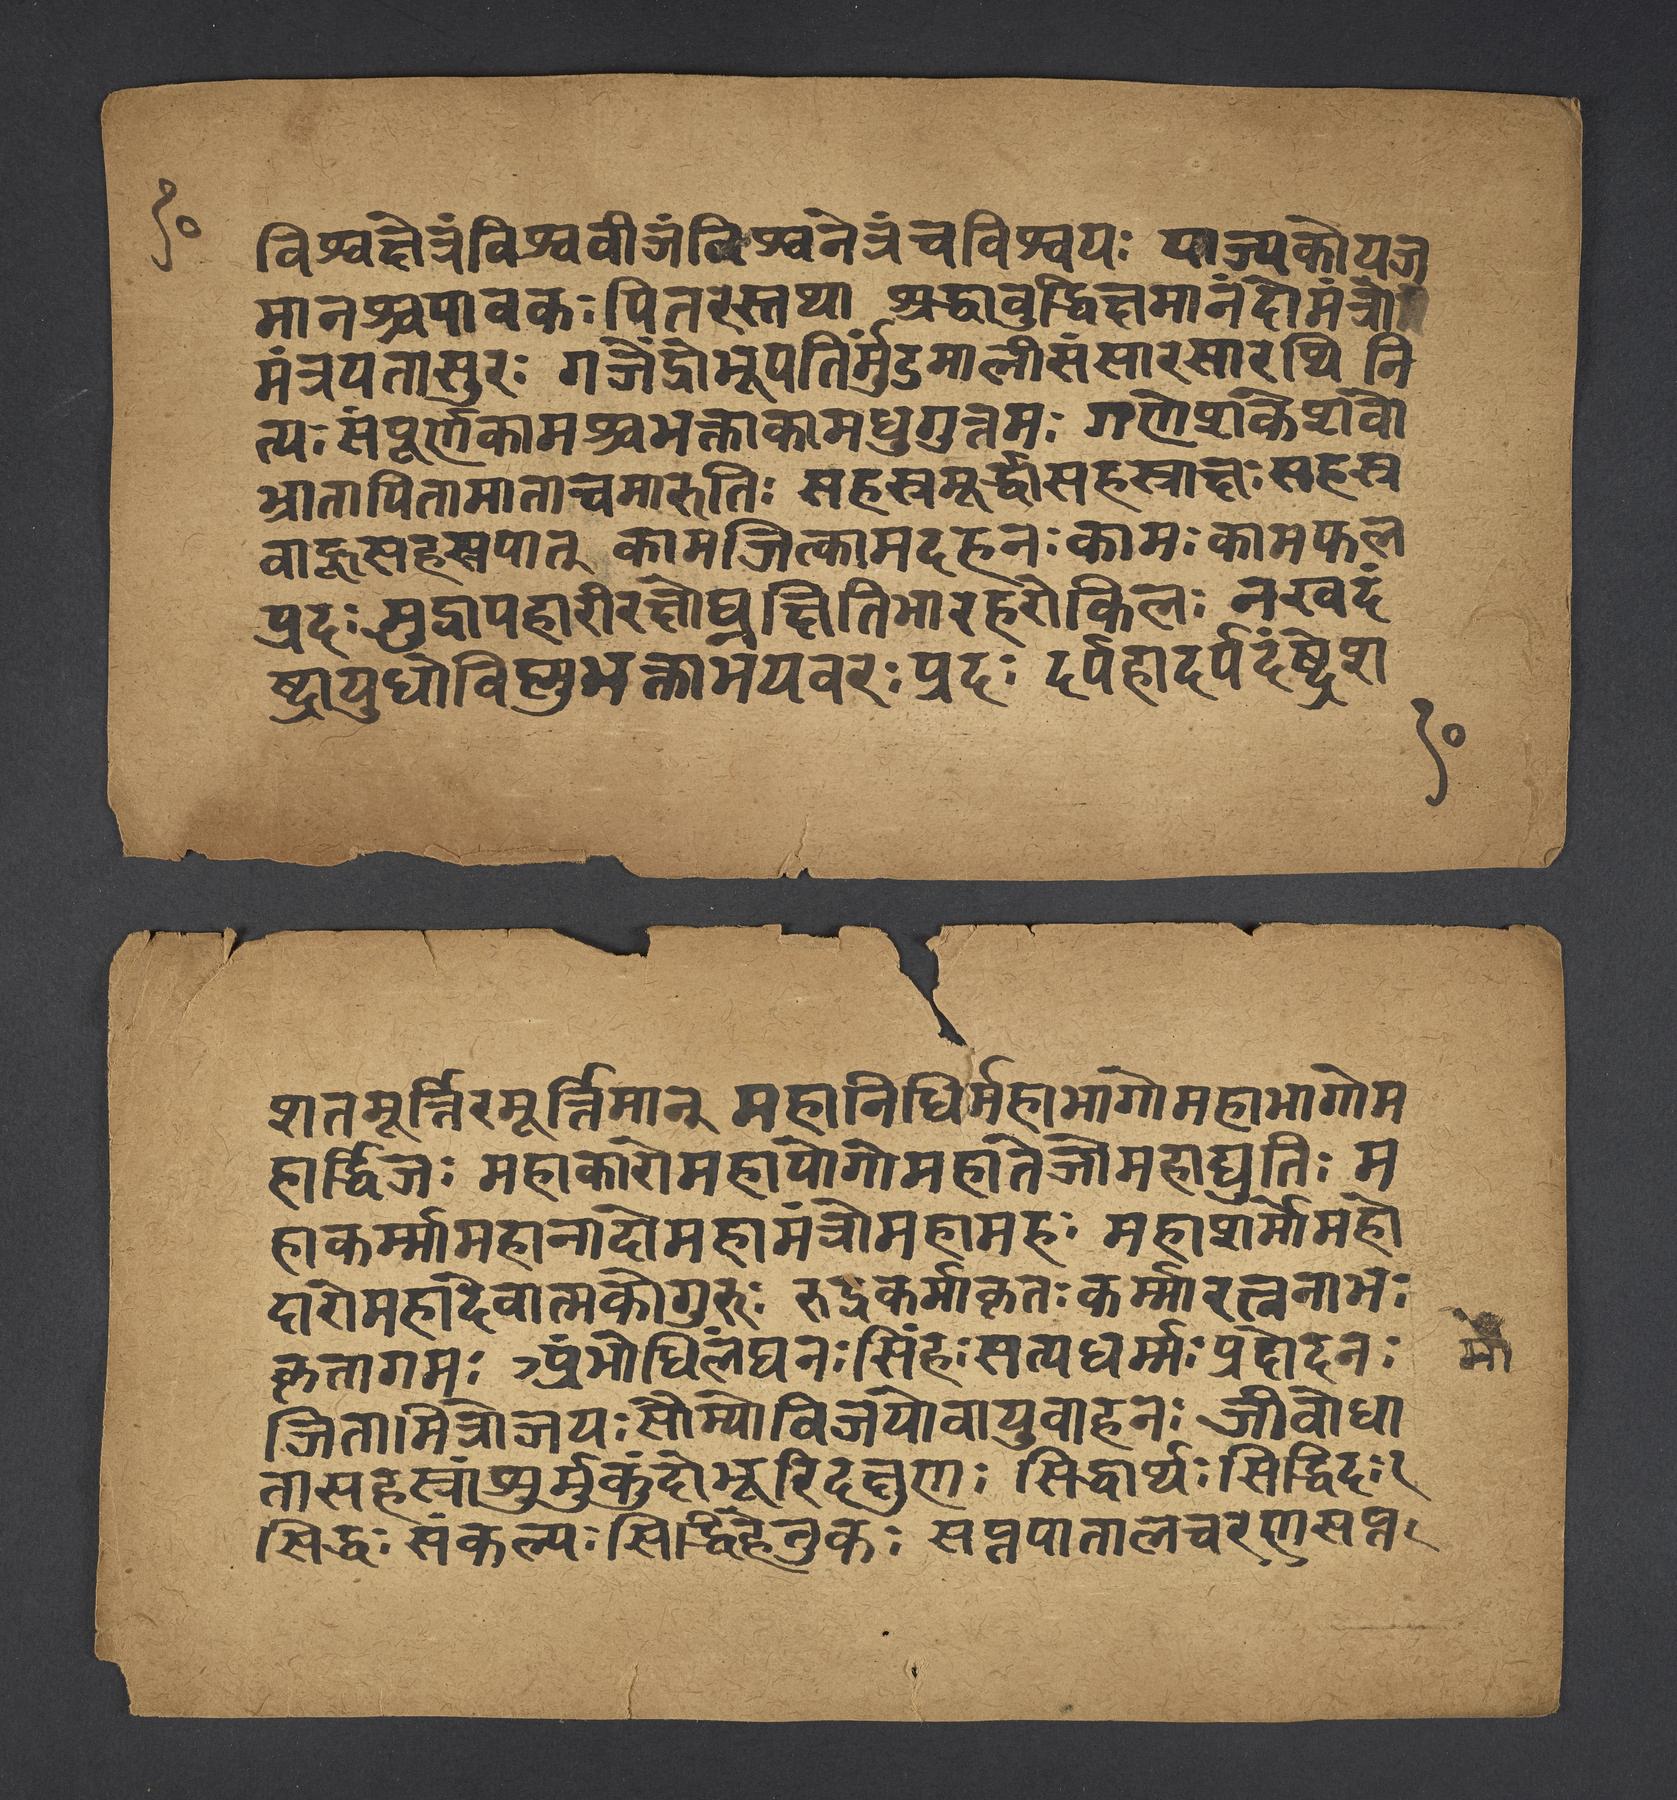 १०
विश्वक्षेत्रंविश्ववीजंविश्वनेत्रंचविश्वपः याज्यकोयज
मानश्चपावकःपितरस्तथा श्रद्धावुद्धिक्षमानंदोमंत्रो
मंत्रयतासुरः गजेंद्रोभूपतिर्मुंडमालीसंसारसारथि नि
त्यःसंपूर्णकामश्चभक्तकामधुगुत्तमः गणेशकेशवो
भ्रातापितामाताचमारुतिः सहस्रमूर्द्धासहस्राक्षःसहस्र
वाहूसहस्रपात् कामजित्कामदहनःकामःकामफल
प्रदः मुद्रापहारीरक्षोघ्नक्षितिभारहरोकिलः नखदं
ष्ट्रायुधोविष्णुभक्ताभयवरःप्रदः दर्पहादर्पदंष्ट्रेश
१०
शतमूर्त्तिरमूर्त्तिमान् महानिधिर्महाभागोमहाभागोम
हार्द्धिजः महाकारोमहायोगोमहातेजोमहाद्युतिः म
हाकर्म्मामहानादोमहामंत्रोमहामहः महाशर्मोमहो
दारोमहादेवात्मकोगुरुः रुद्रकर्माकृतःकर्म्मारत्ननाभः
कृतागमः प्रंभोधिलंघनःसिंहःसत्यधर्म्मःप्रक्षोदनः
मो
जितामित्रोजयःसोम्योविजयोवायुवाहनः जीवोधा
तासहस्त्रांशुर्मुकुंदोभूरिदक्षुणः सिद्धार्थःसिद्धिदः
सिद्धःसंकल्पःसिर्द्धिहेतुकः सप्तपातालचरणसप्त